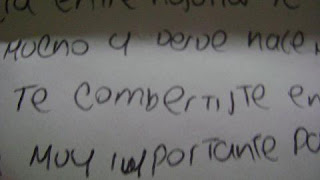 entre
mucho y desde hace
Te combertiste en
Muy importante pa